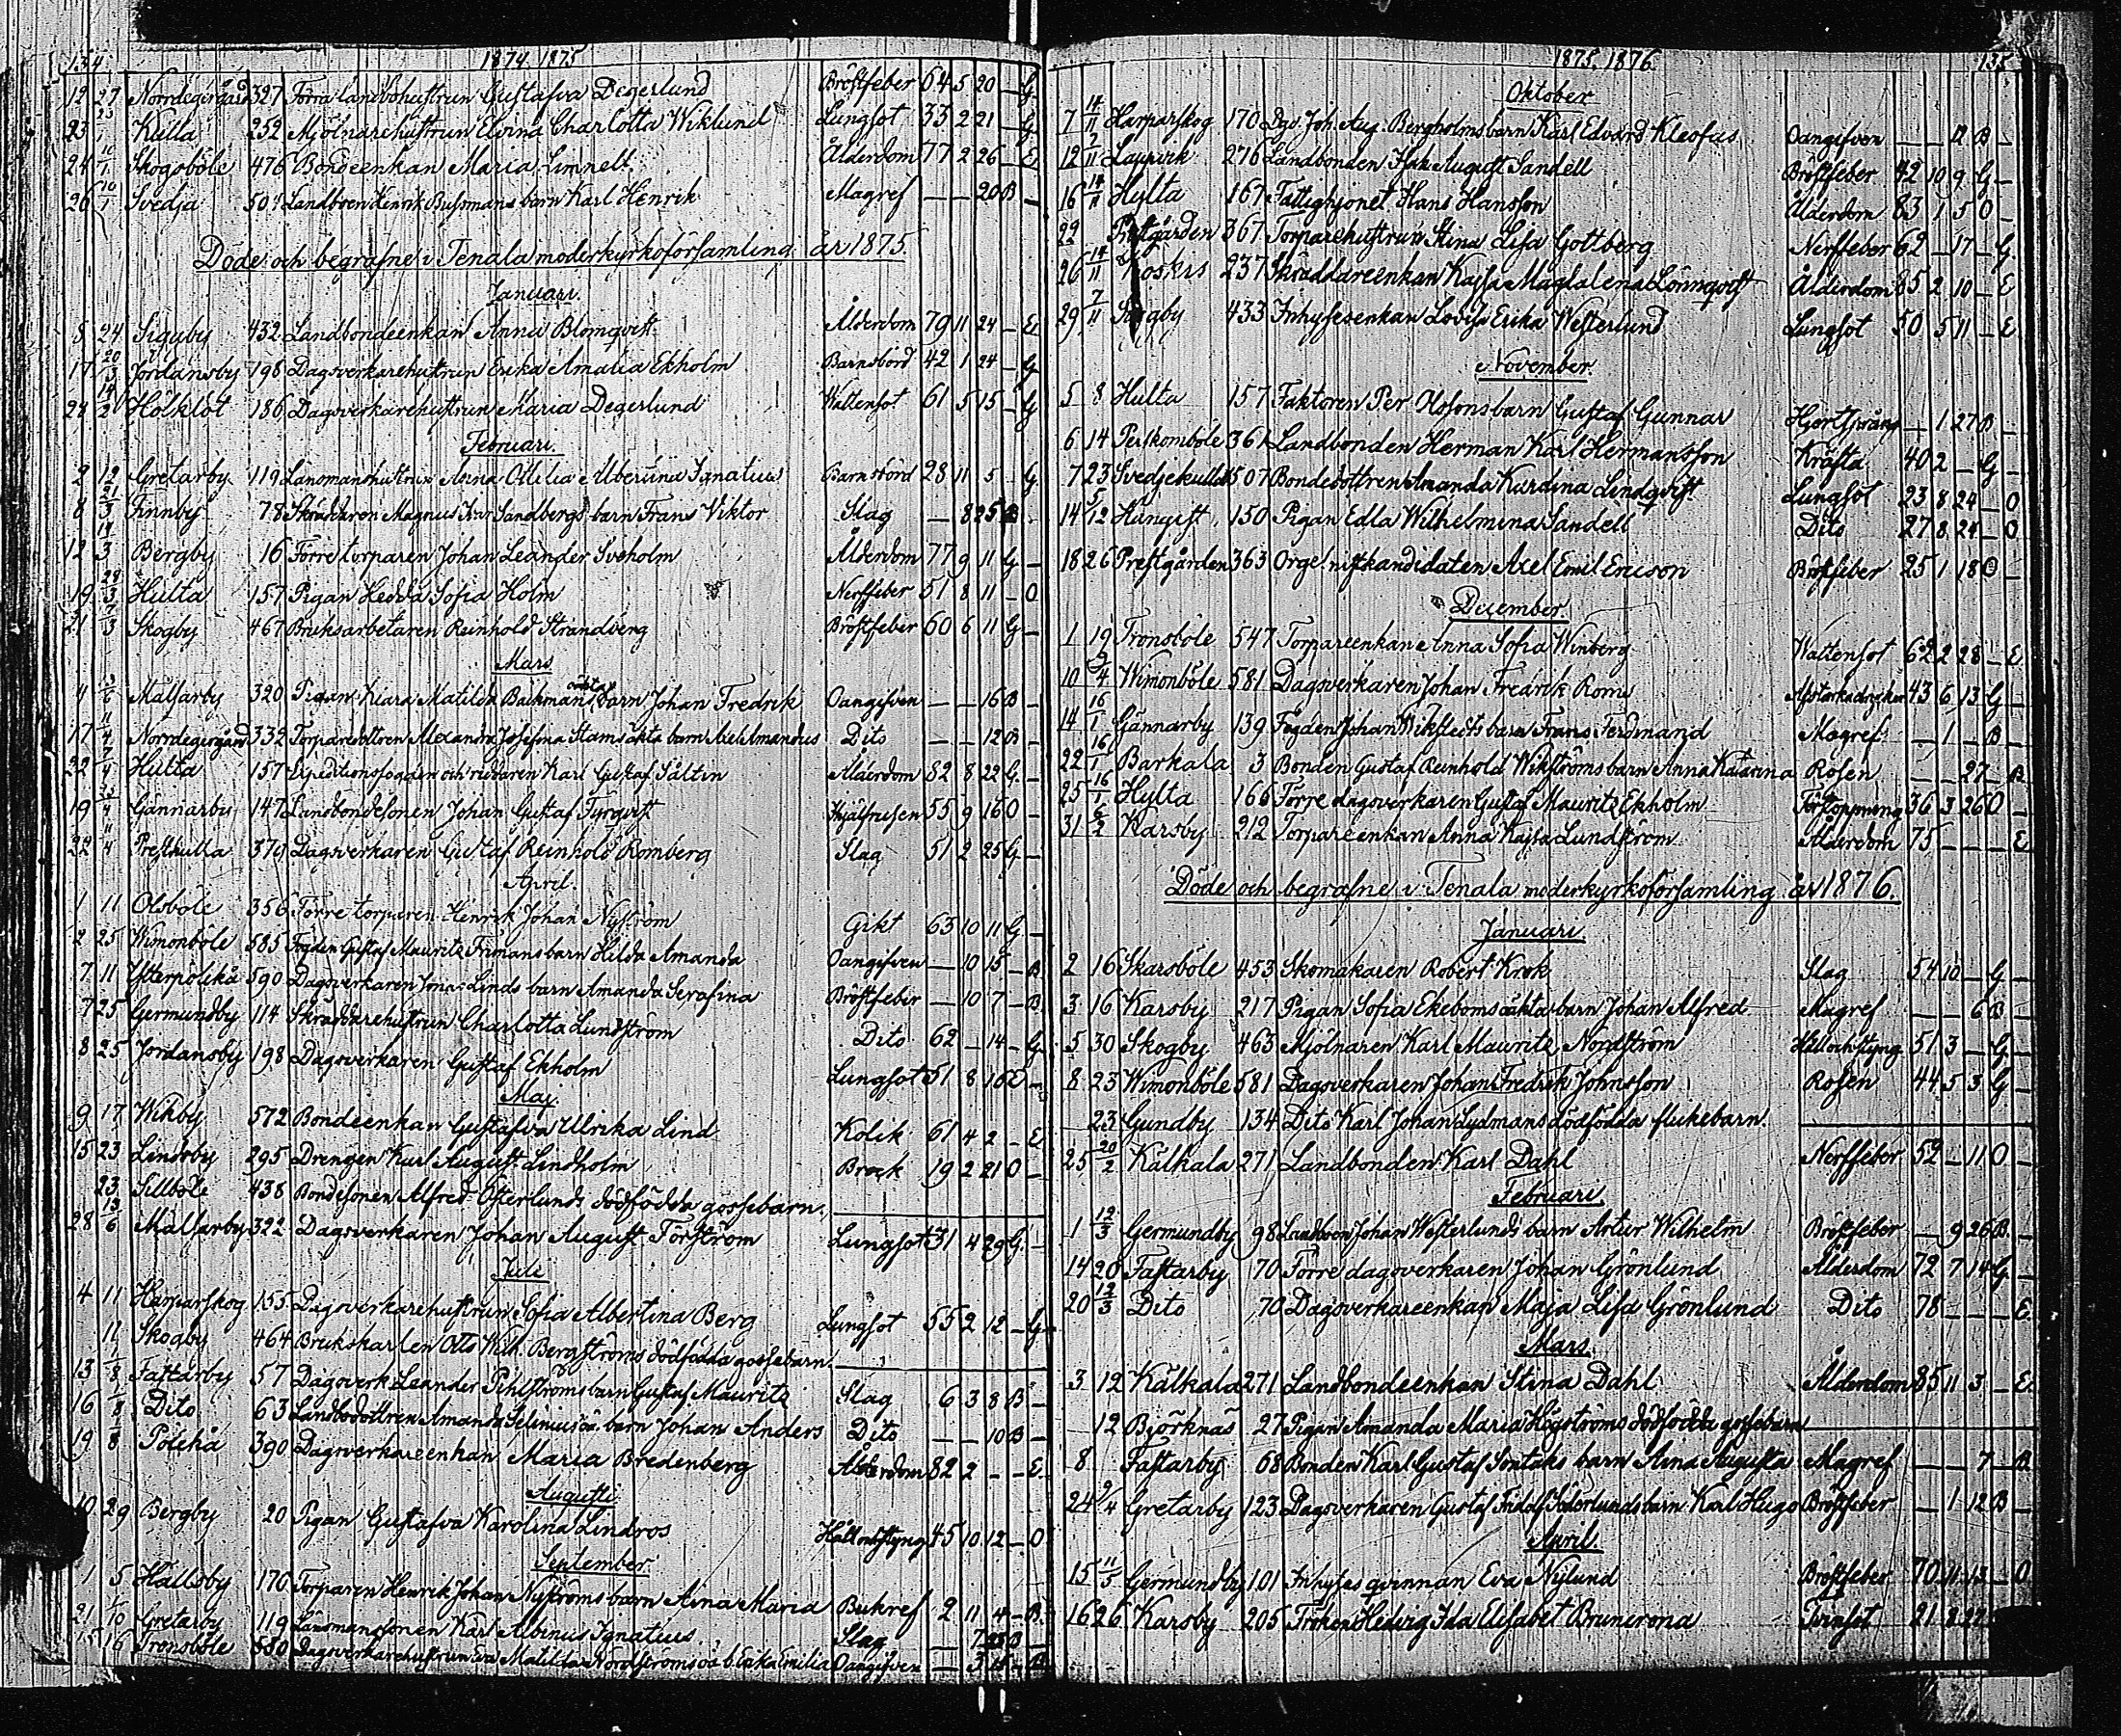 134 1874. 1875
12 27 Norrdegergård 327 Förra landbohustrun Gustafva Degerlund Bröstfeber 64 5 20 – G
23 Kulla 252 Mjölnarehustrun Elvina Charlotta Wiklund Lungsot 35 2 21 – G
24 10/1 Skogsböle 476 Bondeenkan Maria Linnell Ålderdom 77 2 26 – E
26 10/1 Svedja 501 Landboen Henrik Bussmans barn Karl Henrik Magref – – 20 B –
Döde och begrafne i Tenala moderkyrkoförsamling år 1875
Januari.
8 24 Sigguby 432 Landbondeenkan Anna Blomqvist Ålderdom 79 11 24 – E
17 20/3 Jordansby 198 Dagsverkarehustrun Erika Amalia Ekholm Barnsbörd 42 1 24 – G
24 14/2 Holklot 186 Dagsverkarehustrun Maria Degerlund Wattensot 61 5 15 – G
Februari.
2 12 Gretarby 119 Länsmanshustrun Anna Otilia Albertina Ignatius Barnsbörd 28 11 5 – G
8 21/3 Finnby 78 Skräddaren Magnus Sandbergs barn Frans Viktor Slag – 8 25 B –
12 14/3 Bergby 16 Förre torparen Johan Leander Sveholm Ålderdom 77 9 11 G –
19 28/3 Hulta 157 Pigan Hedda Sofia Holm Nerffeber 51 8 11 – O
21 7/3 Skogby 467 Bruksarbetaren Reinhold Strandberg Bröstfeber 60 6 11 G –
Mars
4 Malsarby 320 Pigan Klara Matilda Backmans oäkta barn Johan Fredrik Oangifven – – 16 B –
17 11/4 Norrdegergård 332 Torparedottren Alexandra Josefina Stams äkta barn Axel Amandus Dito – – 12 B –
22 7/4 Hulta 157 Expeditionsfogden och riddaren Karl Gustaf Sältin Ålderdom 82 8 22 G –
19 25/4 Gännarby 147 Landbondesonen Johan Gustaf Fyrqvist 55 9 16 O –
22 11/4 Prestkulla 379 Dagsverkaren Gustaf Reinhold Romberg Slag 51 2 25 G –
April.
1 11 Olsböle 356 Förre torparen Henrik Johan Nyström Gikt 63 10 11 G –
2 25 Wimonböle 585 Fogden Gustaf Mauritz Frimans barn Hilda Amanda Oangifven – 10 15 – B
7 11 Ytterpölekå 590 Dagsverkaren Jonas Linds barn Amanda Serafina Bröstfeber – 10 7 – B
7 25 Germundby 114 Skräddarehustrun Charlotta Lundström Dito 62 – 14 – G
8 25 Jordansby 198 Dagsverkaren Gustaf Ekholm Lungsot 51 8 16 O –
Maj.
9 17 Wikby 572 Bondeenkan Gustafva Ulrika Lind Kolik 61 4 2 – E
15 23 Lindsby 295 Drengen Karl August Lindholm Brock 19 2 21 O –
23 Sillböle 438 Bondesonen Alfred Österlunds dödfödda gossebarn.
28 13/6 Malsarby 322 Dagsverkaren Johan August Förström Lungsot 31 4 29 G –
Juli
4 11 Harparskog 155 Dagsverkarehustrun Sofia Albertina Berg Lungsot 55 2 12 – G
11 Skogby 464 Brukskarlen Otto Wilh. Bergströms dödfödda gossebarn.
13 1/8 Fastarby 57 Dagsverk. Leander Pihlströms barn Gustaf Mauritz Slag 6 3 8 B –
16 1/8 Dito 63 Landbodottren Amanda Selinius oä. barn Johan Anders Dito – – 10 B –
19 1/8 Pölekå 390 Dagsverkareenkan Maria Bredenberg Ålderdom 82 2 – – E
Augusti
10 29 Bergby 20 Pigan Gustafva Karolina Lindros Håll och styng 45 10 12 – O
September.
1 5 Hällsby 170 Torparen Henrik Johan Nyströms barn Aina Maria Bukref 2 11 4 – B
21 1/10 Gretarby 119 Länsmanssonen Karl Albinus Ignatius Slag – 7 28 B –
16 Tronsböle 580 Dagsverkarehustrun Eva Matilda Nordströms oä. b. Erika Emilia Oangifven – 3 – B
1875. 1876. 135
Oktober
7 14/11 Harparskog 170 Dgv. Joh. Aug. Bergholms barn Karl Edvard Kleofas Oangifven – – 12 B –
12 7/11 Laurvik 276 Landbonden Isak August Sandell Bröstfeber 42 10 9 G –
16 14/11 Hylta 167 Fattighjonet Hans Hansson Ålderdom 83 1 5 O –
22 Prestgården 367 Torparehustrun Stina Lisa Gottberg Nerffeber 62 – 17 – G
26 14/11 Koskis 237 Skräddareenkan Kajsa Magdalena Lönnqvist Ålderdom 85 2 10 – E
29 7/11 Skogby 433 Inhysesenkan Lovisa Erika Westerlund Lungsot 50 5 11 – E
November
5 8 Hulta 157 Faktoren Per Olssons barn Gustaf Gunnar Hjertsprång – 1 27 B –
6 14 Perskomböle 361 Landbonden Herman Karl Hermansson Kräfta 40 2 – G –
7 23 Svedjekulla 507 Bondedottren Amanda Kardina Lindqvist Lungsot 23 8 24 – O
14 5/12 Hungist 150 Pigan Edla Wilhelmina Sandell Dito 27 8 24 – O
18 26 Prestgården 363 Orgelnistkandidaten Axel Emil Ericson Bröstfeber 25 1 18 O –
December
1 19 Tronsböle 547 Torpareenkan Anna Sofia Winberg Wattensot 62 2 28 – E
10 9/4 Wimonböle 581 Dagsverkaren Johan Fredrik Roms 43 6 13 G –
14 16/1 Gännarby 139 Fogden Johan Wikstedts barn Frans Ferdinand Magref – 1 – B –
22 16/1 Barkala 3 Bonden Gustaf Reinhold Wikströms barn Anna Katarina Rosen – – 27 – B
25 16/1 Hylta 166 Förre dagsverkaren Gustaf Mauritz Ekholm Förstoppning 36 3 26 O –
31 6/2 Karsby 212 Torpareenkan Anna Kajsa Lundström Ålderdom 75 – – – E
Döde och begrafne i Tenala moderkyrkoförsamling år 1876.
Januari.
2 16 Skarsböle 453 Skomakaren Robert Krok Slag 54 10 – G –
3 16 Karsby 217 Pigan Sofia Ekeboms oäkta barn Johan Alfred Magref – – 6 B –
5 30 Skogby 463 Mjölnaren Karl Mauritz Nordström Håll och styng 51 3 – G –
8 23 Wimonböle 581 Dagsverkaren Johan Fredrik Johnsson Rosen 44 5 3 G –
23 Gundby 134 Dito Karl Johan Lydmans dödfödda flickebarn.
25 20/2 Kälkala 271 Landbonden Karl Dahl Nerffeber 52 – 11 O –
Februari
1 12/3 Germundby 98 Landboen Johan Westerlunds barn Artur Wilhelm Bröstfeber – 9 26 B –
14 20 Fastarby 70 Förre dagsverkaren Johan Grönlund Ålderdom 72 7 14 G –
20 12/3 Dito 70 Dagsverkareenkan Maja Lisa Grönlund Dito 78 – – – E
Mars.
3 12 Kälkala 271 Landbondeenkan Stina Dahl Ålderdom 85 11 3 – E
12 Björknäs 27 Pigan Amanda Maria Högströms dödfödda gossebarn
8 Fastarby 68 Bonden Karl Gustaf Sontaks barn Aina Augusta Magref – – 7 – B
24 9/4 Gretarby 123 Dagsverkaren Gustaf Fridolf Söderlunds barn Karl Hugo Bröstfeber – 1 12 B –
April.
15 11/5 Germundby 101 Inhyses qvinnan Eva Nylund Bröstfeber 70 11 13 – O
16 26 Karsby 205 Fröken Hedvig Ida Elisabet Brunerona Tvinsot 21 8 22